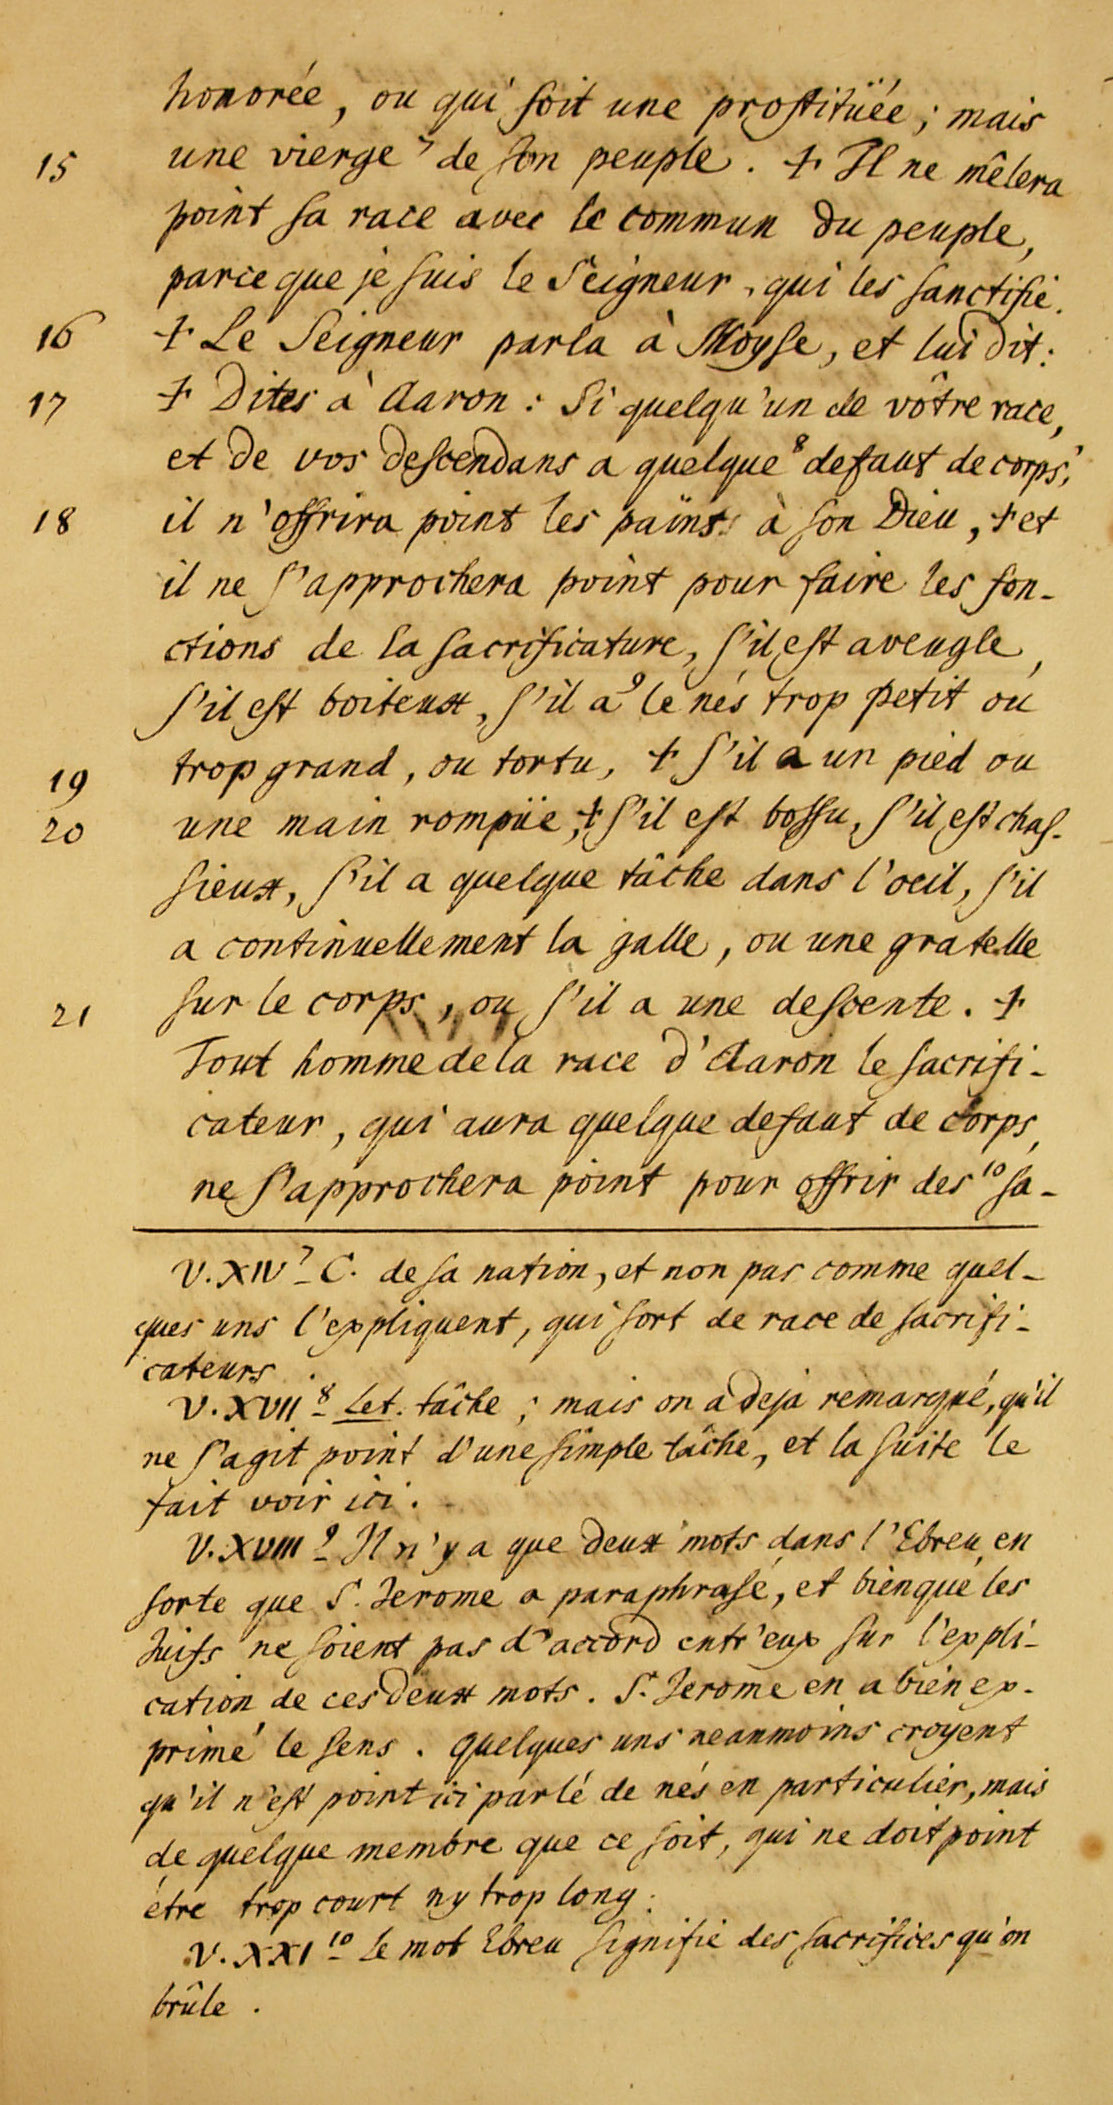 honorée, ou qui soit une prostituée ; mais
15 une vierge 7 de son peuple. + Il ne mêlera
point sa race avec le commun du peuple,
parce que je suis le Seigneur, qui les sanctifie.
16 + Le Seigneur parla à Moyse, et lui dit :
17 + Dites à Aaron : Si quelqu'un de vôtre race,
et de vos descendans a quelque 8 defaut de corps,
18 il n'offrira point les païns à son Dieu, + et
il ne s'approchera point pour faire les fon-
ctions de la sacrificature, s'il est aveugle,
s'il est boiteux, s'il a 9 le nés trop petit ou
19 trop grand, ou tortu, + s'il a un pied ou
20 une main rompüe, + s'il est bossu, s'il est chas-
sieux, s'il a quelque tâche dans l'oeil, s'il
a continuellement la galle, ou une gratelle
21 sur le corps, ou s'il a une descente. +
Tout homme de la race d'Aaron le sacrifi-
cateur, qui aura quelque defaut de corps,
ne s'approchera point pour offrir des 10 sa-
V. XIV 7 C. de sa nation, et non pas comme quel-
ques uns l'expliquent, qui sort de race de sacrifi-
cateurs.
V. XVII 8 Let. tâche ; mais on a deja remarqué, qu'il
ne s'agit point d'une simple tâche, et la suite le
fait voir ici.
V. XVIII 9 Il n'y a que deux mots dans l'Ebreu, en
sorte que S. Jerome a paraphrasé, et bienque les
Juifs ne soient pas d'accord entr'eux sur l'expli-
cation de ces deux mots. S. Jerome en a bien ex-
primé le sens. quelques uns neanmoins croyent
qu'il n'est point ici parlé de nés en particulier, mais
de quelque membre que ce soit, qui ne doit point
être trop court ny trop long.
V. XXI 10 le mot Ebreu signifie des sacrifices qu'on
brûle.